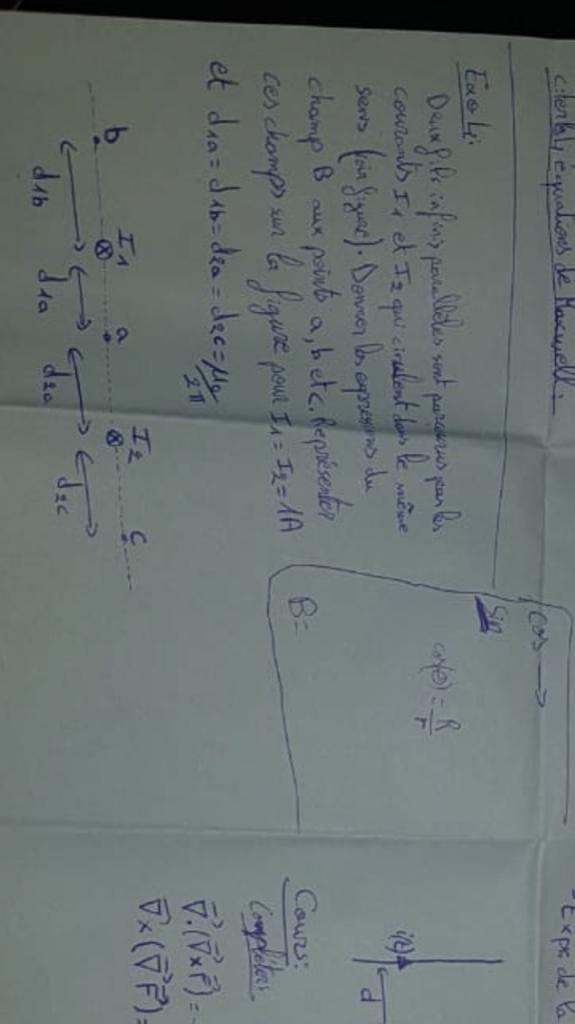 équations de Maxwell.
Exo 4:
Deux fils infinis parallèles sont parcourus par les
courants I1 et I2 qui circulent dans le même
sens (voir figure). Donner les expressions du
champ B aux points a, b et c. Représenter
ces champs sur la figure pour I1 = I2 = 1A
et d1a = d1b = d2a = d2c = μ0/2π
b I1 a I2 c
d1b d1a d2a d2c
cos →
Sin
cos(θ) = R/r
B =
Expr de la
i(t)
d
Cours:
Compléter
∇.(∇×F) =
∇×(∇F) =